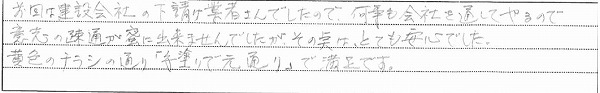 前回は建設会社の下請け業者さんでしたので、何事も会社を通してやるので
意志の疎通が密に出来ませんでしたが その点は、とても安心でした。
黄色のチラシの通り「手塗りで元通り」で満足です。